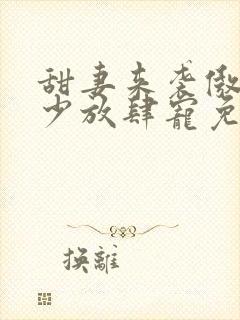 甜妻来袭傲
少放肆宠免
换離